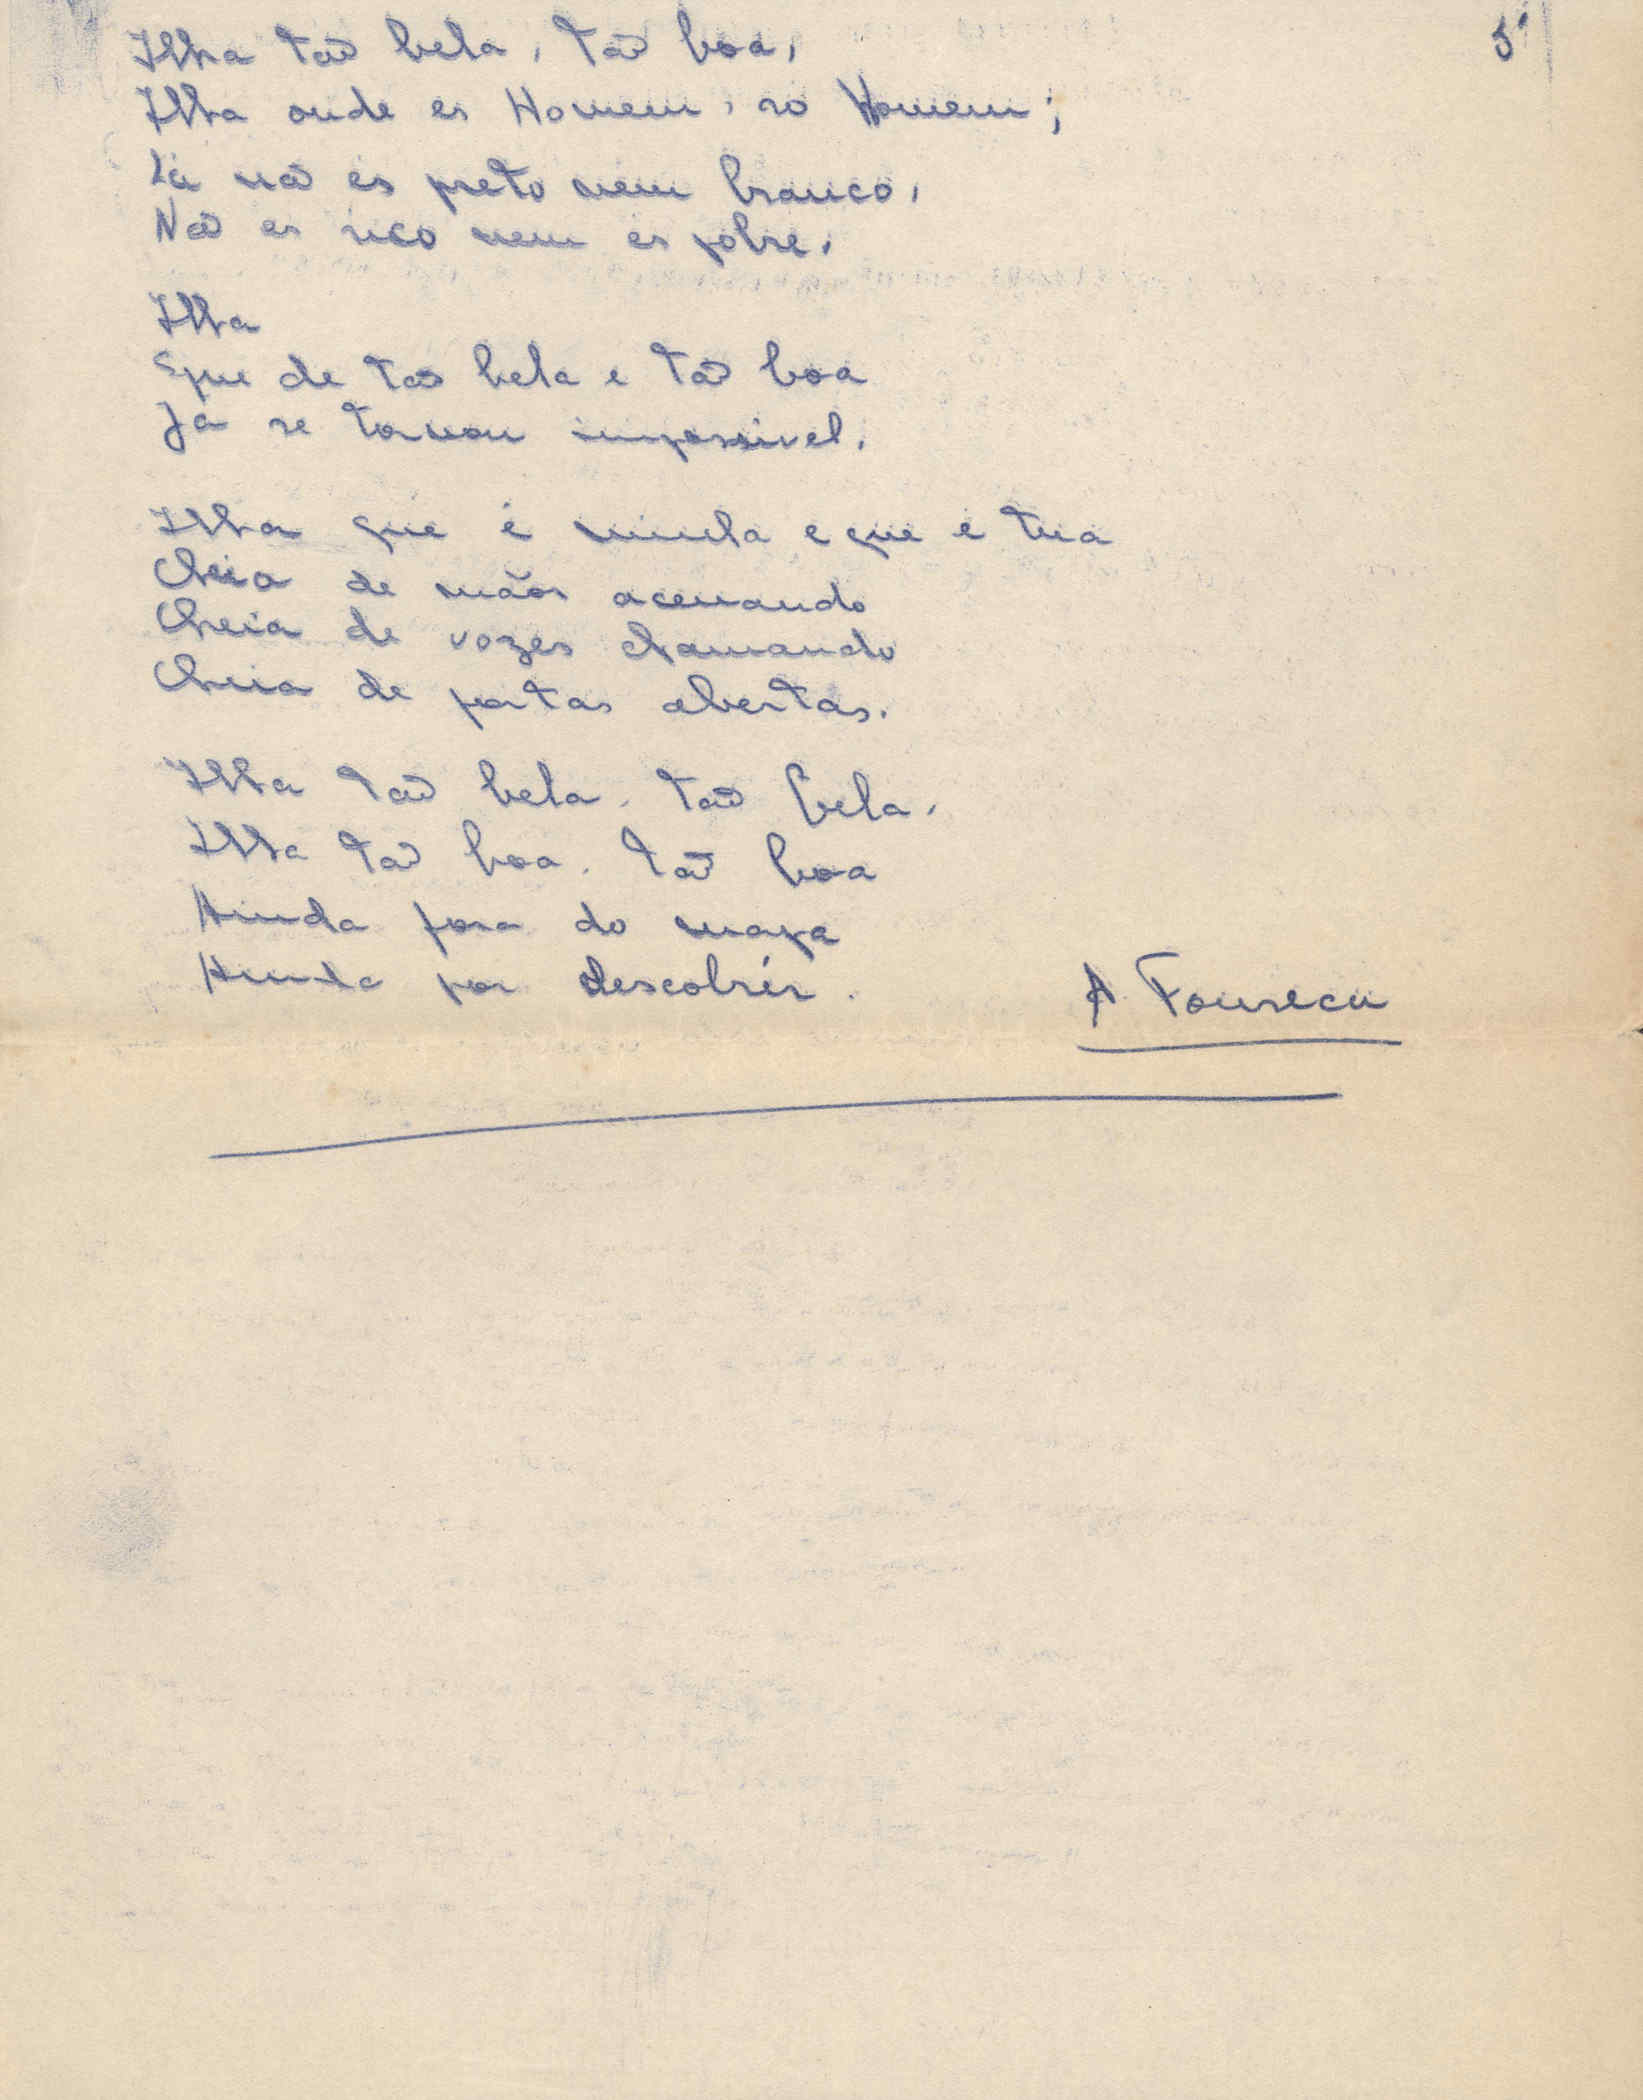 5
Ilha tão bela, tão boa,
Ilha onde és Homem, só Homem;
Lá não és preto nem branco,
Não és rico nem és pobre.
Ilha
Que de tão bela e tão boa
Já se tornou impossivel.
Ilha que é minha e que é tua
Cheia de mãos acenando
Cheia de vozes chamando
Cheia de portas abertas.
Ilha tão bela, tão bela,
Ilha tão boa, tão boa
Ainda fora do mapa
Ainda por descobrir.
A. Fonseca